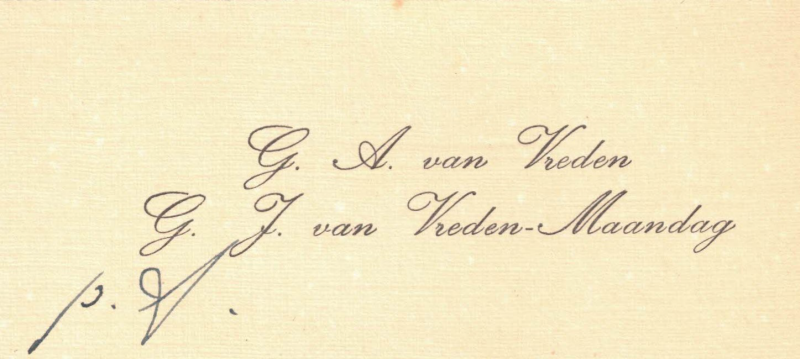 G. A. van Vreden
G. J. van Vreden-Maandag
p. f.